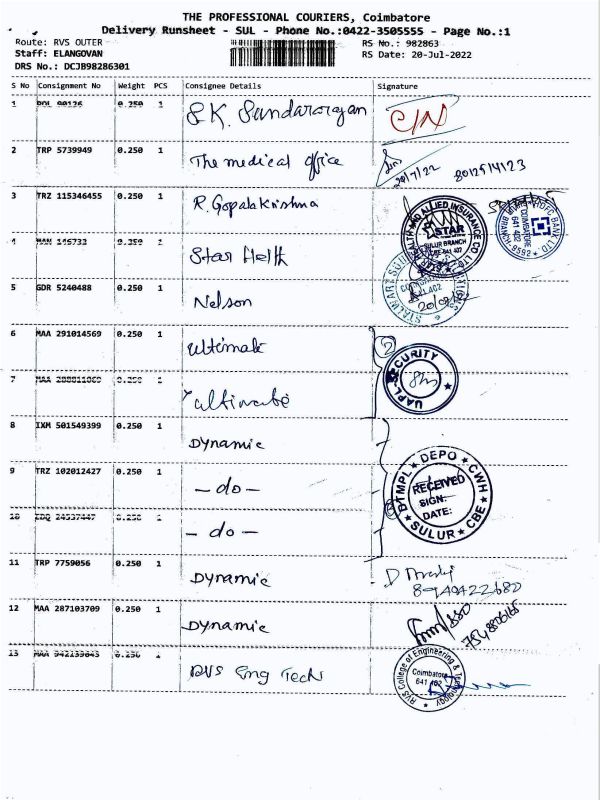 THE PROFESSIONAL COURIERS, Coimbatore
Delivery Runsheet - SUL - Phone No.:0422-3505555 - Page No.:1
Route: RVS OUTER RS No.: 982863
Staff: ELANGOVAN RS Date: 20-Jul-2022
DRS No.: DCJB98286301
S No Consignment No Weight PCS Consignee Details Signature
1 0.250 1 S.K. Sundararajan C/N
2 TRP 5739949 0.250 1 The medical office 20/7/22 8012514123
3 TRZ 115346455 0.250 1 R. Gopalakrishna
STAR HEALTH AND ALLIED INSURANCE CO. LTD
STAR
SULUR BRANCH
HDFC BANK LTD
COIMBATORE
641 402
4 0.250 1 Star Helth
5 GDR 5240488 0.250 1 Nelson
6 MAA 291014569 0.250 1 ultimate 2
7 0.250 1 ultimate
UAPL SECURITY
8 IXM 501549399 0.250 1 Dynamic
9 TRZ 102012427 0.250 1 - do -
DTMPL DEPO CWH
RECEIVED
SIGN:
DATE:
SULUR CBE
10 0.250 1 - do -
11 TRP 7759056 0.250 1 Dynamic
12 MAA 287103709 0.250 1 Dynamic
13 0.250 1 RVS Eng Tech
RVS College of Engineering & Technology
Coimbatore
641 402